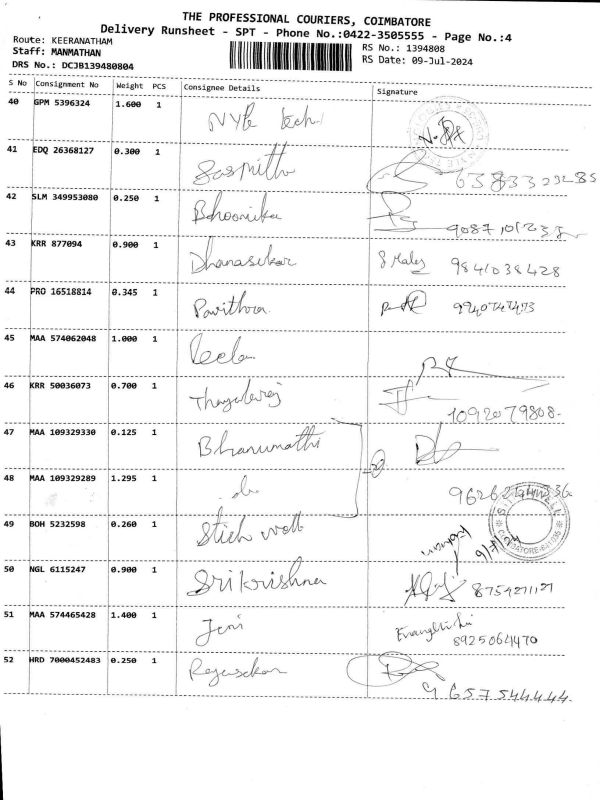 THE PROFESSIONAL COURIERS, COIMBATORE
Delivery Runsheet - SPT - Phone No.:0422-3505555 - Page No.:4
Route: KEERANATHAM
Staff: MANMATHAN
DRS No.: DCJB139480804
RS No.: 1394808
RS Date: 09-Jul-2024
S No Consignment No Weight PCS Consignee Details Signature
40 GPM 5396324 1.600 1
41 EDQ 26368127 0.300 1 Sasmitha
42 SLM 349953080 0.250 1 Bhoomika
43 KRR 877094 0.900 1 Dhanasekar 9841038428
44 PRO 16518814 0.345 1 Pavithra 9940747473
45 MAA 574062048 1.000 1 Leela
46 KRR 50036073 0.700 1 Thayalaraj 1092079808-
47 MAA 109329330 0.125 1 Bhanumathi
48 MAA 109329289 1.295 1 do
49 BOH 5232598 0.260 1 Stich well
50 NGL 6115247 0.900 1 Srikrishna
51 MAA 574465428 1.400 1 Jeni 8925064470
52 HRD 7000452483 0.250 1 Rajasekar
9657544444